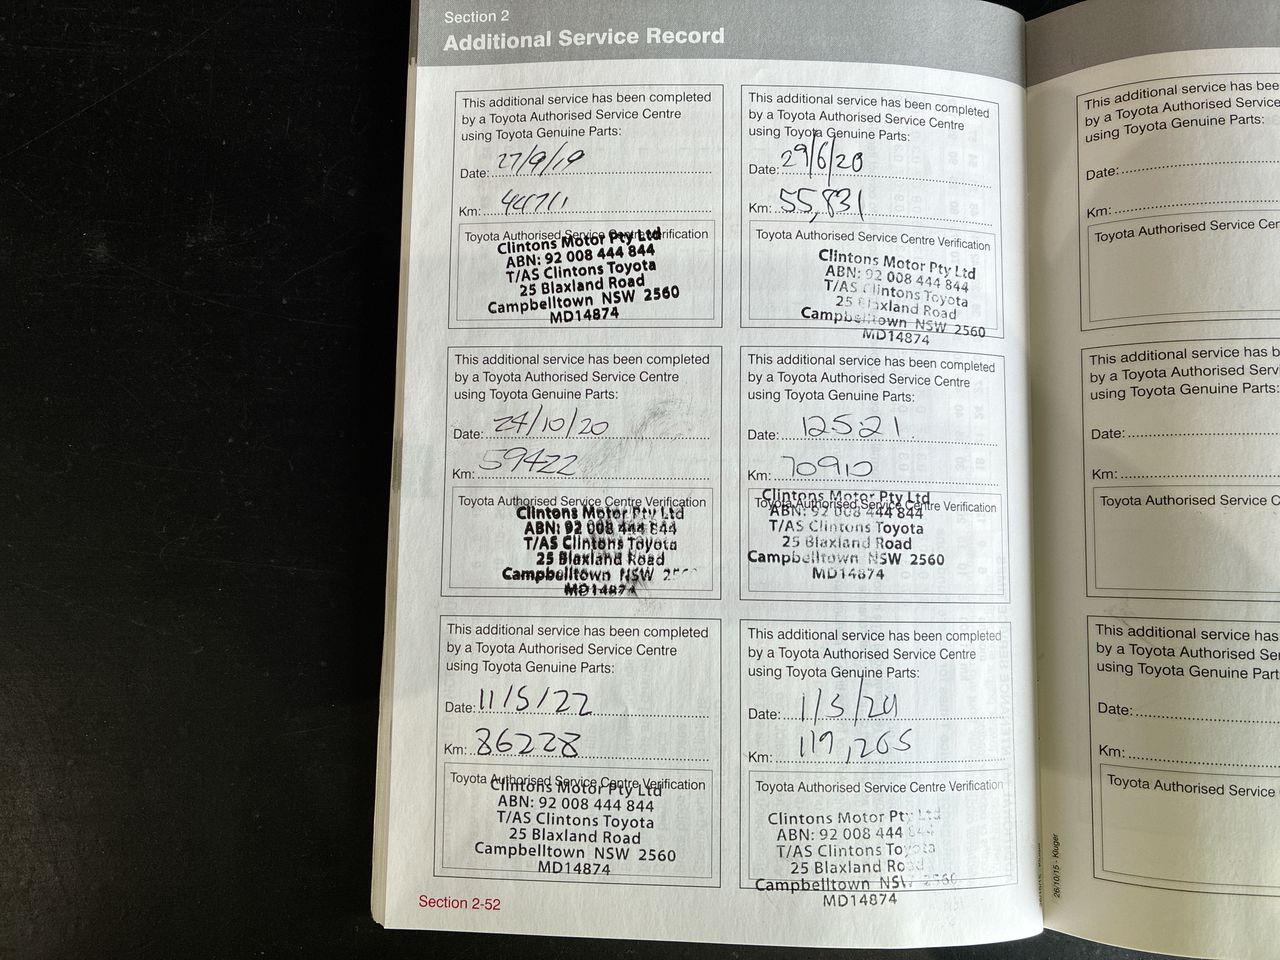 Section 2
Additional Service Record
This additional service has been completed
by a Toyota Authorised Service Centre
using Toyota Genuine Parts:
Date: 27/9/19
Km:
Toyota Authorised Service Centre Verification
Clintons Motor Pty Ltd
ABN: 92 008 444 844
T/AS Clintons Toyota
25 Blaxland Road
Campbelltown NSW 2560
MD14874
This additional service has been completed
by a Toyota Authorised Service Centre
using Toyota Genuine Parts:
Date: 29/6/20
Km: 55,831
Toyota Authorised Service Centre Verification
Clintons Motor Pty Ltd
ABN: 92 008 444 844
T/AS Clintons Toyota
25 Blaxland Road
Campbelltown NSW 2560
MD14874
This additional service has been completed
by a Toyota Authorised Service Centre
using Toyota Genuine Parts:
Date: 24/10/20
Km: 59422
Toyota Authorised Service Centre Verification
Clintons Motor Pty Ltd
ABN: 92 008 444 844
T/AS Clintons Toyota
25 Blaxland Road
Campbelltown NSW
MD14874
This additional service has been completed
by a Toyota Authorised Service Centre
using Toyota Genuine Parts:
Date: 12.5.21.
Km: 70910
Toyota Authorised Service Centre Verification
Clintons Motor Pty Ltd
ABN: 92 008 444 844
T/AS Clintons Toyota
25 Blaxland Road
Campbelltown NSW 2560
MD14874
This additional service has been completed
by a Toyota Authorised Service Centre
using Toyota Genuine Parts:
Date: 11/5/22
Km: 86228
Toyota Authorised Service Centre Verification
Clintons Motor Pty Ltd
ABN: 92 008 444 844
T/AS Clintons Toyota
25 Blaxland Road
Campbelltown NSW 2560
MD14874
This additional service has been completed
by a Toyota Authorised Service Centre
using Toyota Genuine Parts:
Date: 1/5/24
Km: 119,265
Toyota Authorised Service Centre Verification
Clintons Motor Pty Ltd
ABN: 92 008 444 844
T/AS Clintons Toyota
25 Blaxland Road
Campbelltown NSW 2560
MD14874
Section 2-52
This additional service has bee
by a Toyota Authorised Service
using Toyota Genuine Parts:
Date:
Km:
Toyota Authorised Service Cen
This additional service has b
by a Toyota Authorised Serv
using Toyota Genuine Parts:
Date:
Km:
Toyota Authorised Service C
This additional service has
by a Toyota Authorised Se
using Toyota Genuine Part
Date:
Km:
Toyota Authorised Service
26/10/15 - Kluger